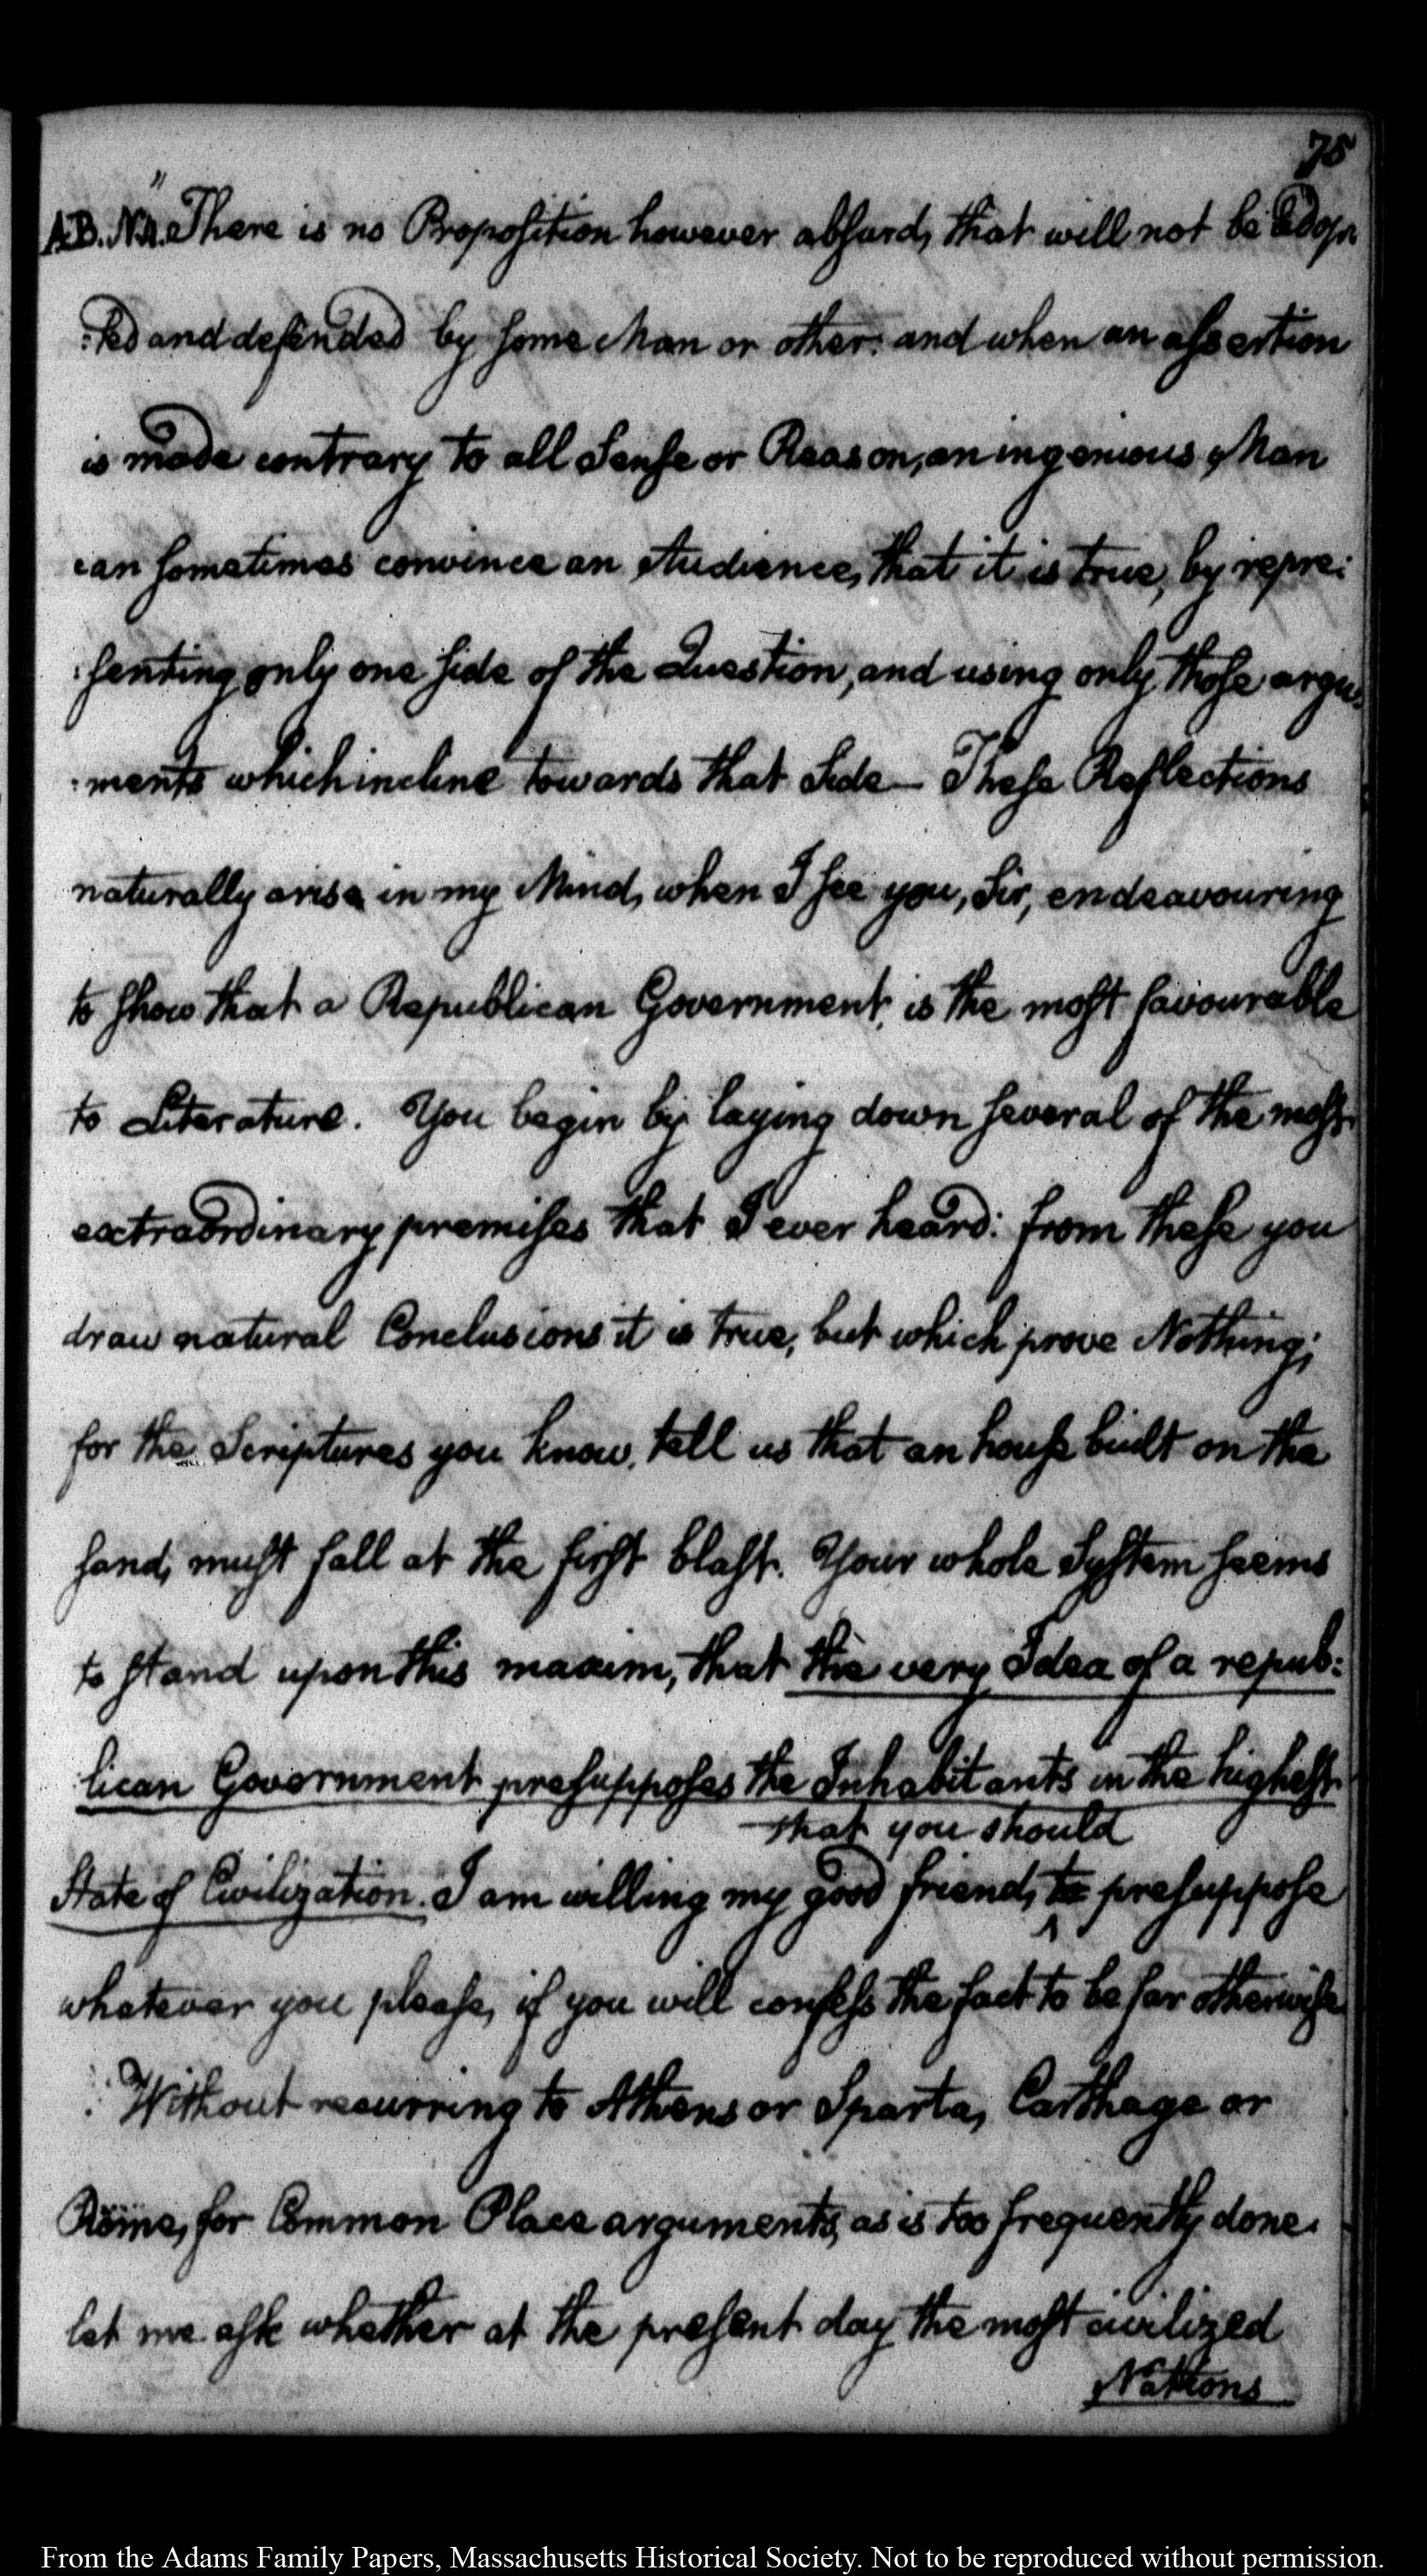 75
A.B. N.1. "There is no Proposition however absurd, that will not be adop-
:ted and defended by some Man or other: and when an assertion
is made contrary to all Sense or Reason, an ingenious Man
can sometimes convince an Audience, that it is true, by repre:
:senting only one side of the Question, and using only those argu:
:ments which incline towards that Side — These Reflections
naturally arise in my Mind, when I see you, Sir, endeavouring
to show that a Republican Government, is the most favourable
to Literature. You begin by laying down several of the most
extraordinary premises that I ever heard: from these you
draw natural Conclusions it is true, but which prove Nothing;
for the Scriptures you know, tell us that an house built on the
sand, must fall at the first blast. Your whole System seems
to stand upon this maxim, that the very Idea of a repub:
lican Government presupposes the Inhabitants in the highest
that you should
State of Civilization. I am willing my good friend, to presuppose
whatever you please, if you will confess the fact to be far otherwise
: Without recurring to Athens or Sparta, Carthage or
Rome, for Common Place arguments, as is too frequently done.
let me ask whether at the present day the most civilized
Nations
From the Adams Family Papers, Massachusetts Historical Society. Not to be reproduced without permission.